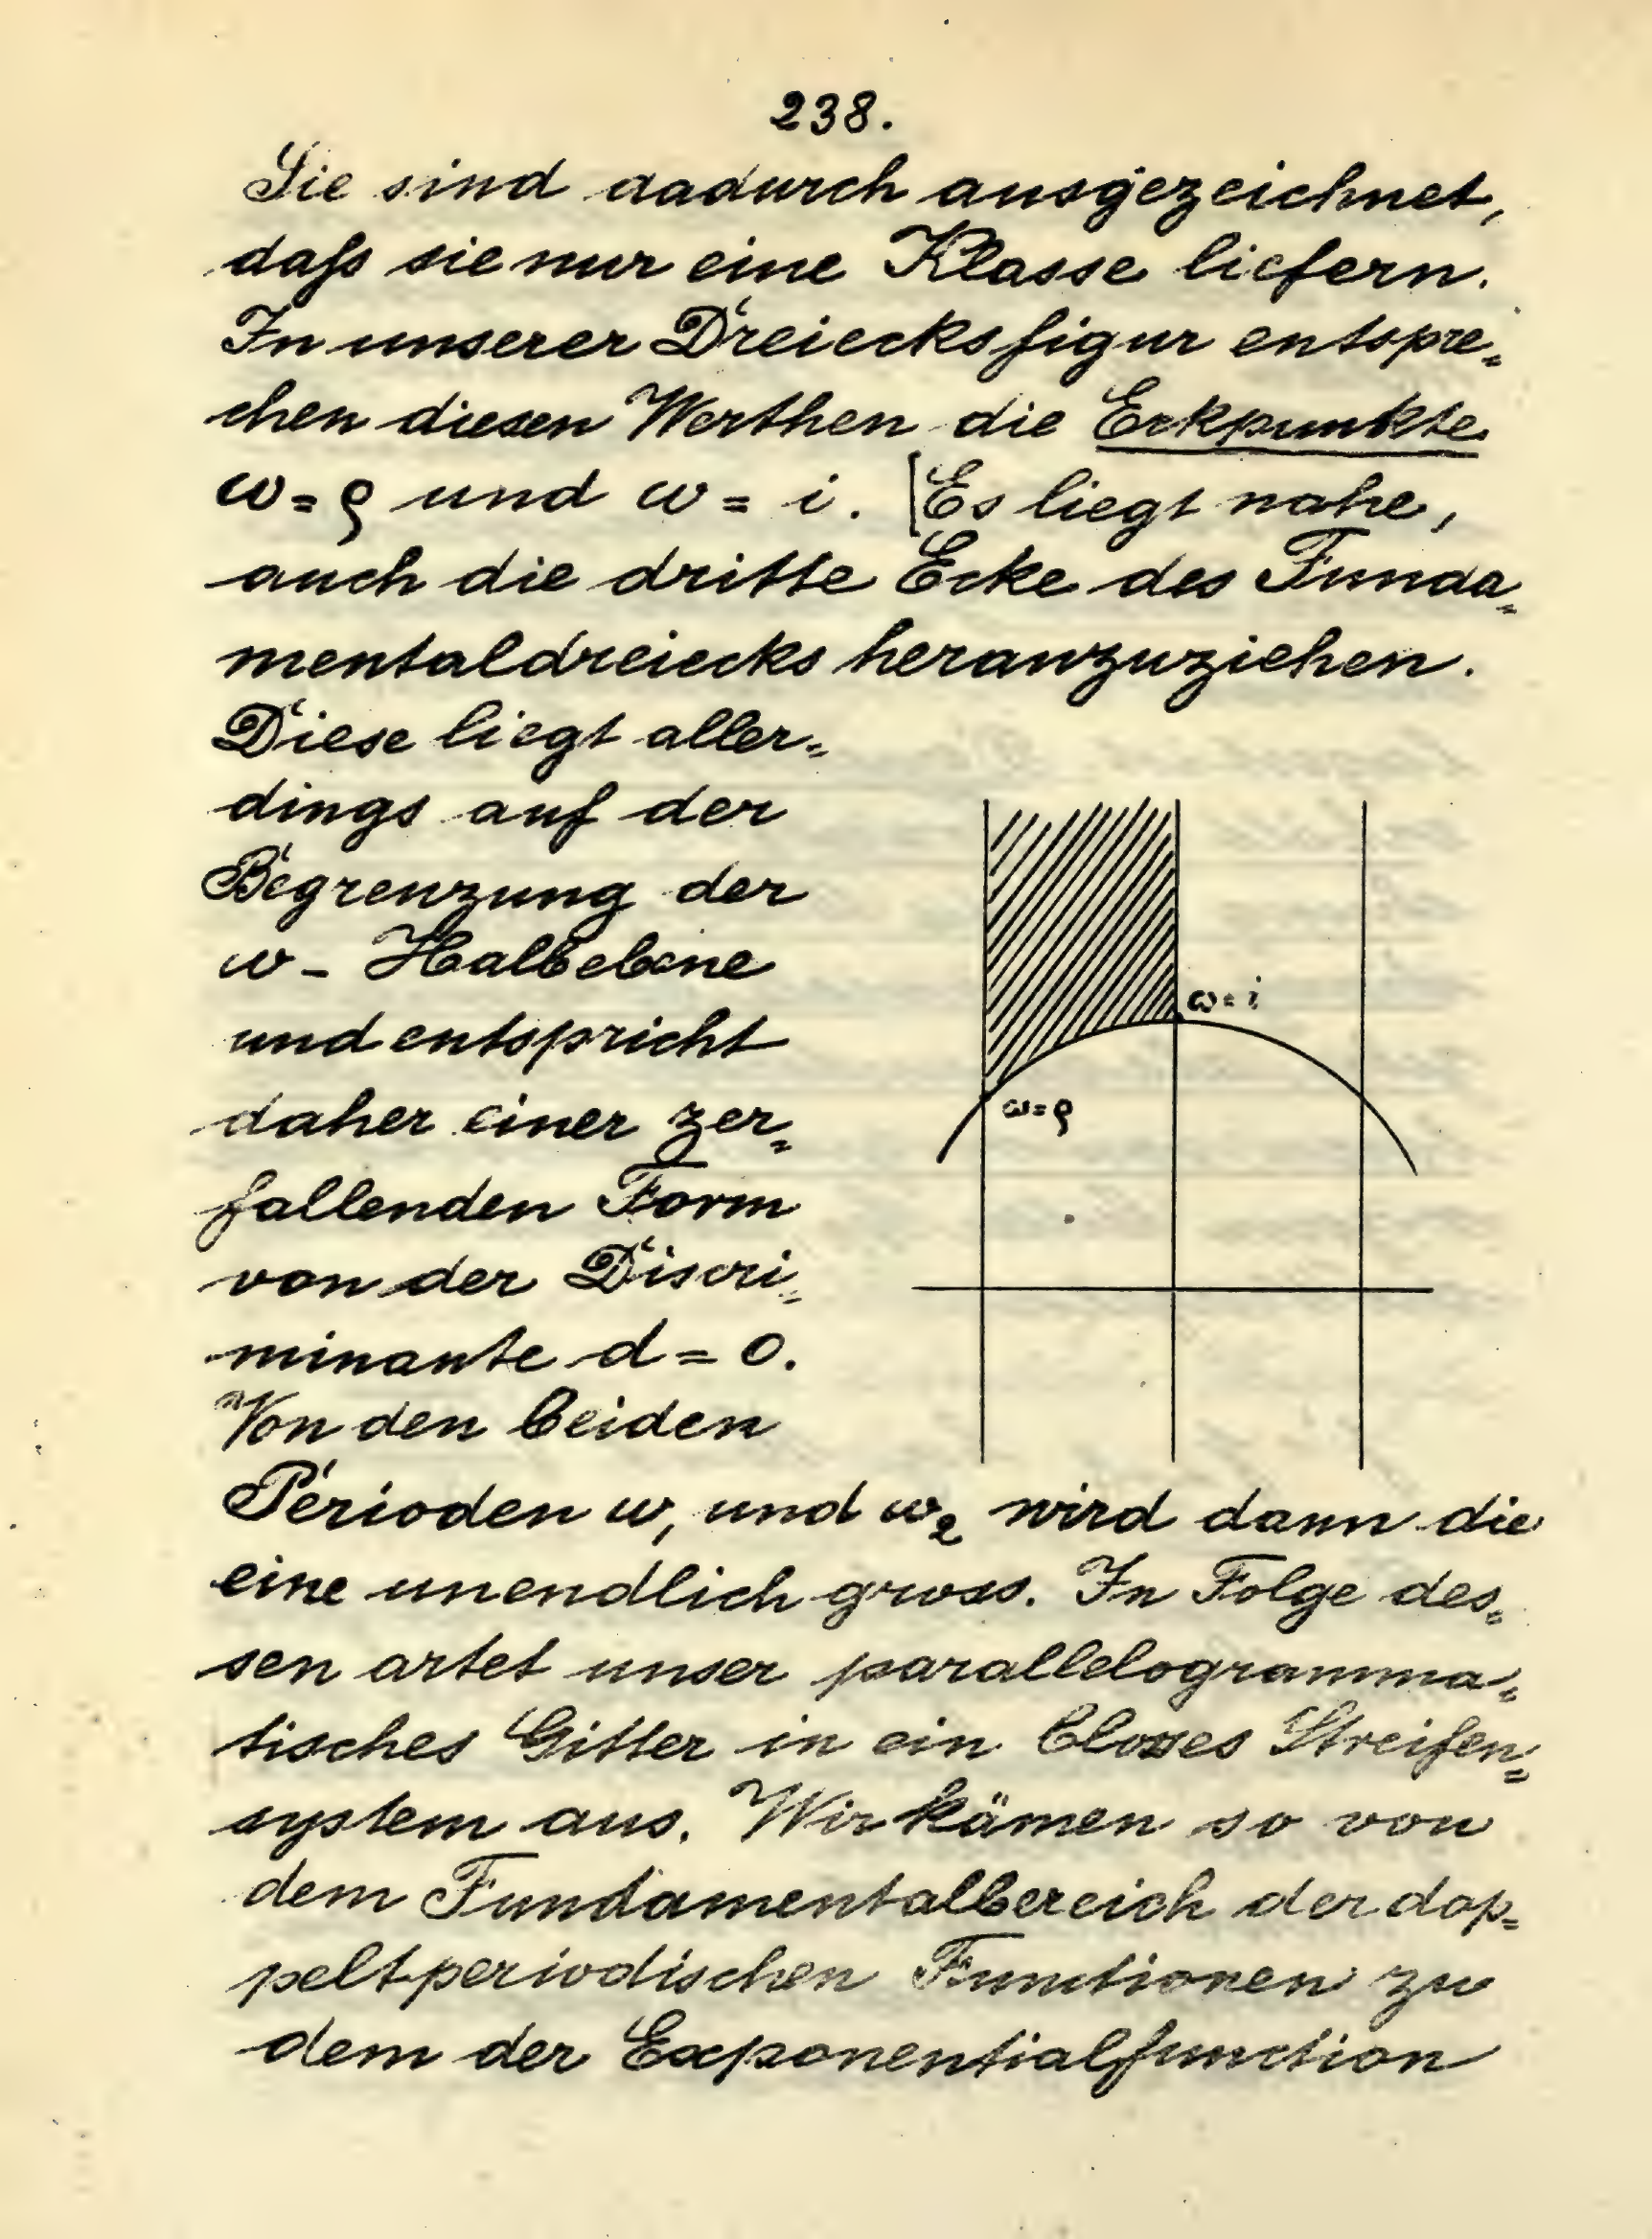 238.
Sie sind dadurch ausgezeichnet,
daſs sie nur eine Klasse liefern.
In unserer Dreiecksfigur entspre-
chen diesen Werthen die Eckpunkte
ω = ϱ und ω = i. [Es liegt nahe,
auch die dritte Ecke des Funda-
mentaldreiecks heranzuziehen.
Diese liegt aller-
dings auf der
Begrenzung der
ω - Halbebene
und entspricht
daher einer zer-
fallenden Form
von der Discri-
minante d = 0.
Von den beiden
Perioden ω₁ und ω₂ wird dann die
eine unendlich gross. In Folge des-
sen artet unser parallelogramma-
tisches Gitter in ein blosses Streifen-
system aus. Wir kämen so von
dem Fundamentalbereich der dop-
peltperiodischen Functionen zu
dem der Exponentialfunction
ω = i
ω = ϱ